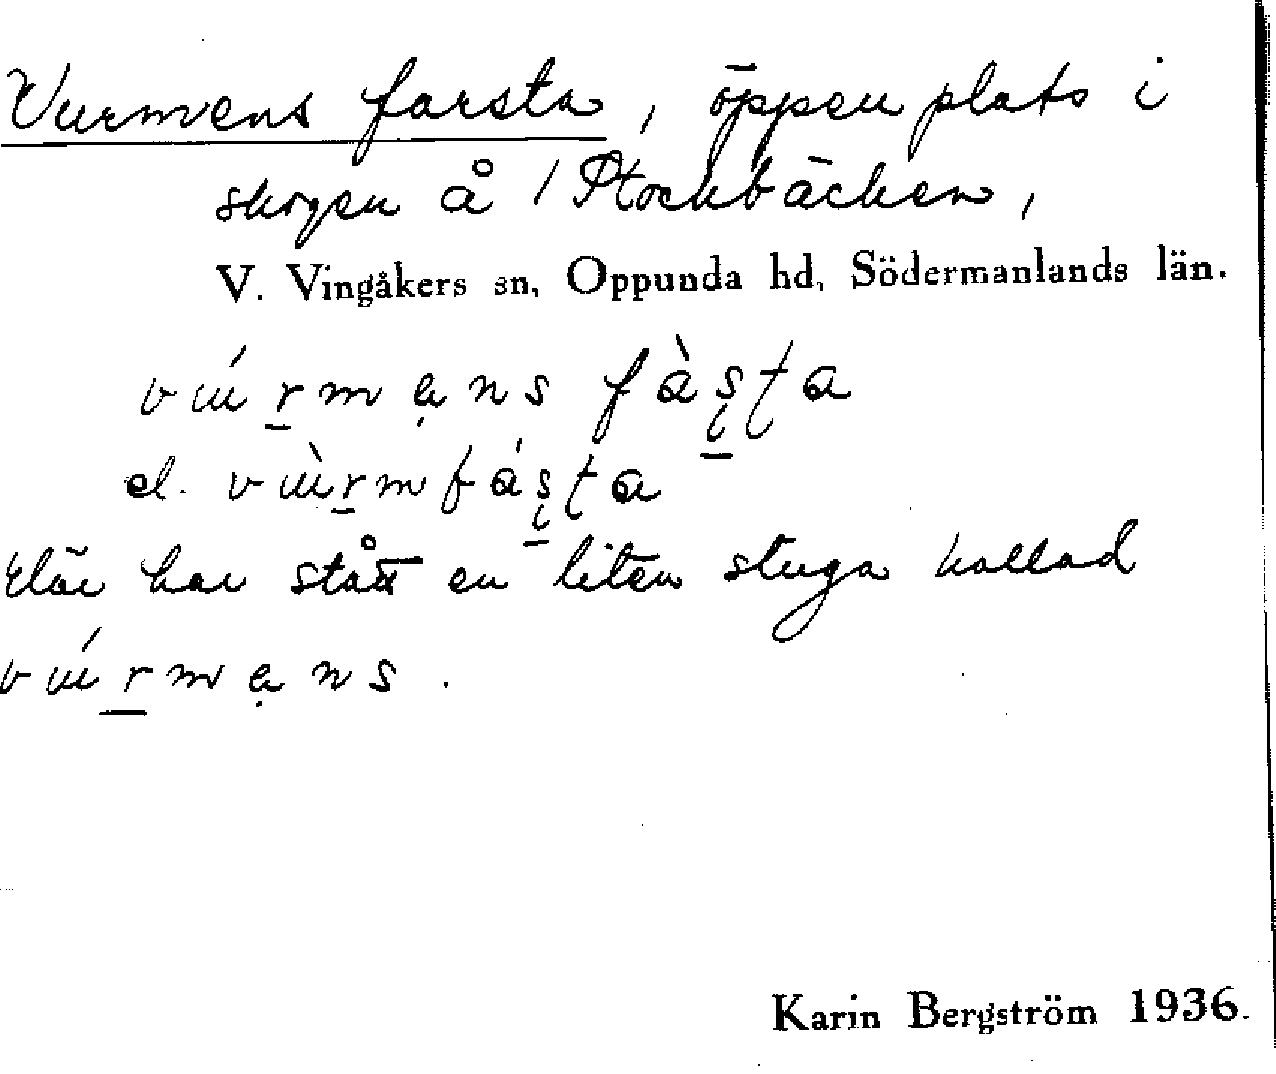 Vurmens farsta, öppen plats i
skogen å 1 Stockbäcken,
V. Vingåkers sn, Oppunda hd, Södermanlands län.
vúrmẹns fàşta
el. vùrmfáşta
där har stått en liten stuga kallad
vúrmẹns.
Karin Bergström 1936.